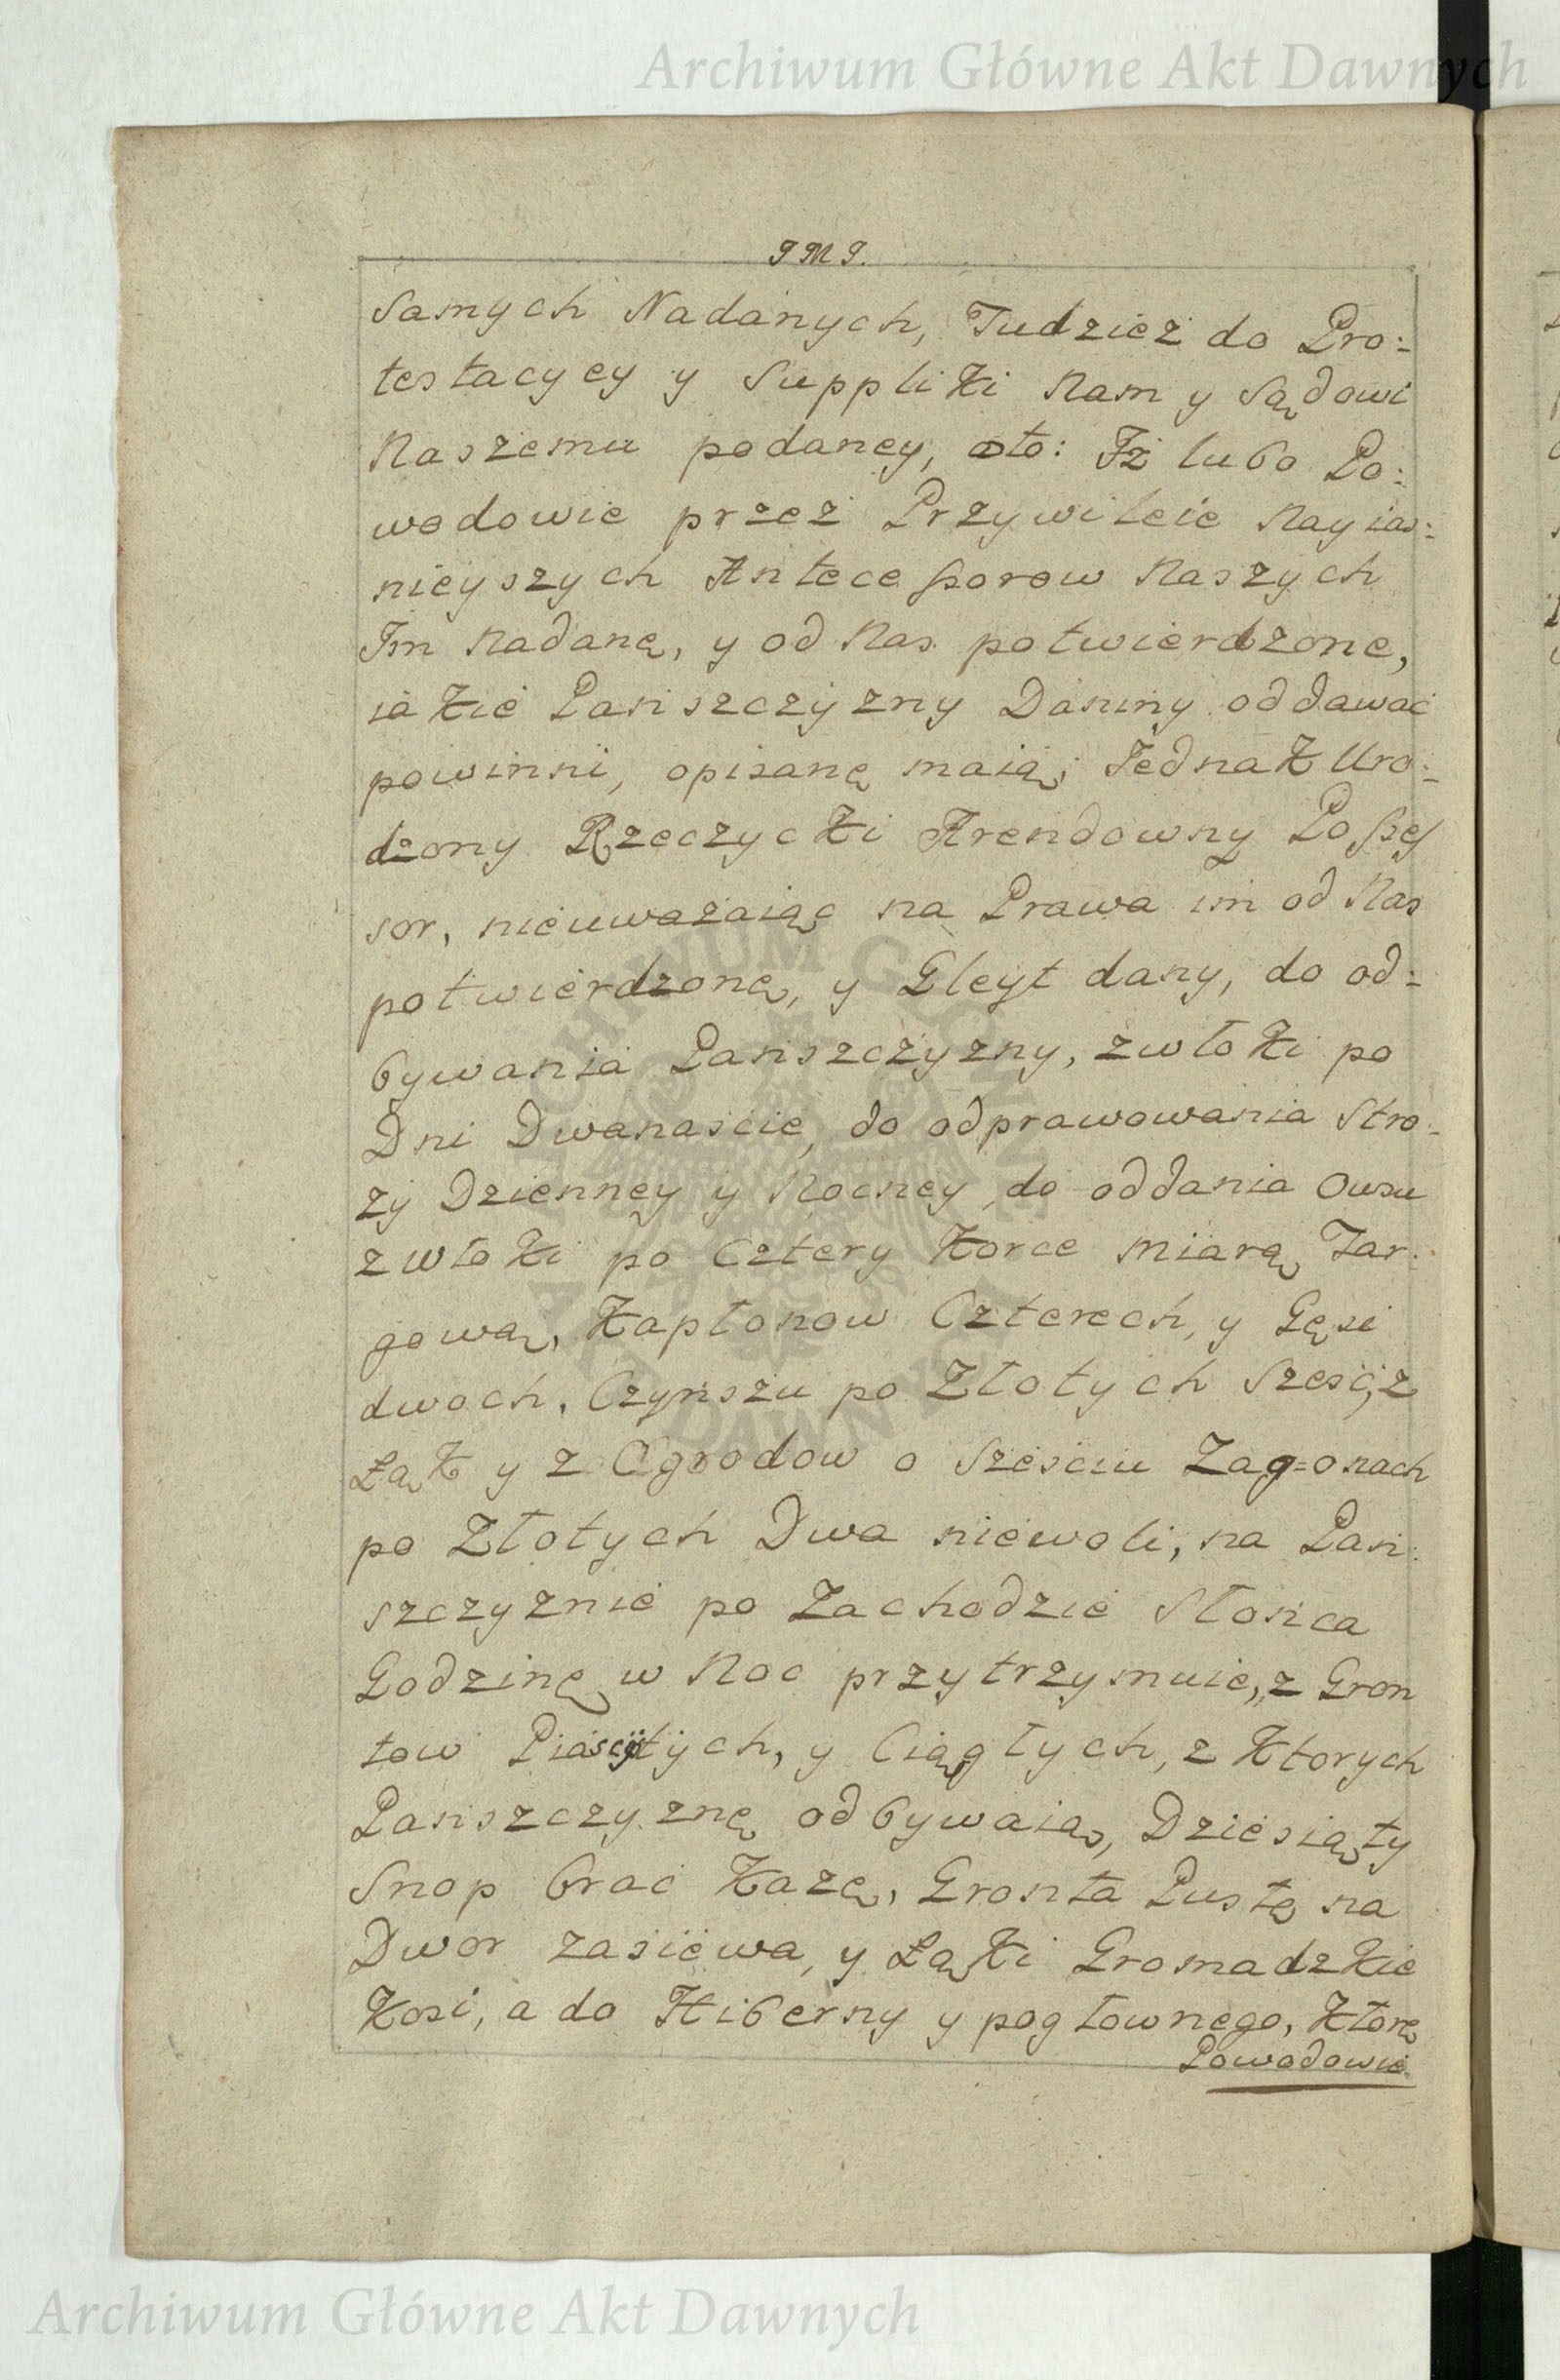 Archiwum Główne Akt Dawnych
J M J.
Samych Nadanych, Tudziez do Pro:
testacyey y Suppliki Nam y Sądowi
Naszemu podaney, oto: Iż lubo Po:
wodowie przez Przywileie Nayias:
nieyszych Antecessorow Naszych
Im Nadanę, y od Nas potwierdzone,
iakie Pańszczyzny Daniny oddawać
powinni, opisanę maią; Jednak Uro:
dzony Rzeczycki Arendowny Posses
sor, nieuważaiąc na Prawa im od Nas
potwierdzonę, y Gleyt dany, do od:
bywania Pańszczyzny, zwłoki po
Dni Dwanascie, do odprawowania Stro:
zy Dzienney y Nocney, do oddania Owsu
zwłoki po Cztery Korce miarą Tar:
gową, Kapłonow Czterech, y Gęsi
dwoch, Czynszu po Złotych Sześć, z
Łąk y z Ogrodow o Sześciu Zag=onach
po Złotych Dwa niewoli, na Pań:
szczyznie po Zachodzie Słońca
Godzinę w Noc przytrzymuie, z Gron
tow Piasczÿstych, y Ciągłych, z Ktorych
Pańszczyznę odbywaią, Dziesiąty
Snop brać Kazę, Gronta Pustę na
Dwor zasiewa, y Łąki Gromadzkie
Kosi, a do Hiberny y pogłownego, Ktorę
Powodowie
Archiwum Główne Akt Dawnych